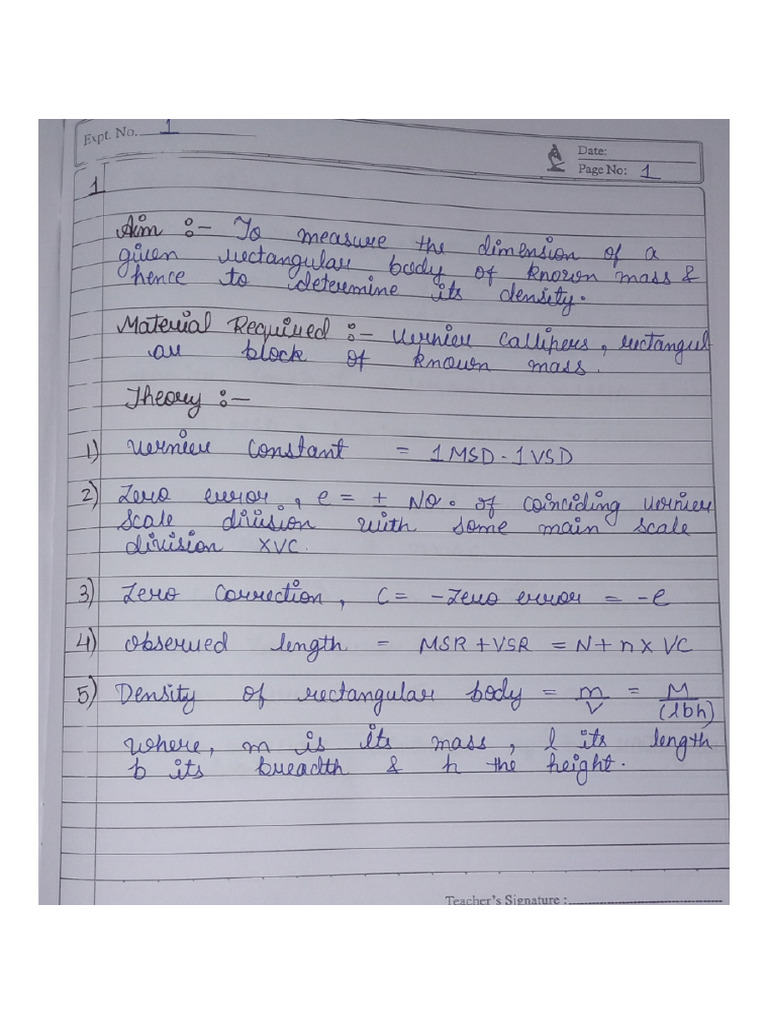 Expt. No. 1
Date:
Page No: 1
1
Aim :- To measure the dimension of a
given rectangular body of known mass &
hence to determine its density.
Material Required :- Vernier Callipers, rectangul
ar block of known mass.
Theory :-
1) Vernier Constant = 1MSD - 1VSD
2) Zero error, e = ± No. of coinciding vernier
scale division with some main scale
division XVC.
3) Zero Correction, C = -Zero error = -e
4) Observed length = MSR + VSR = N + n x VC
5) Density of rectangular body = m/V = M/(lbh)
where, m is its mass, l its length
b its breadth & h the height.
Teacher's Signature :